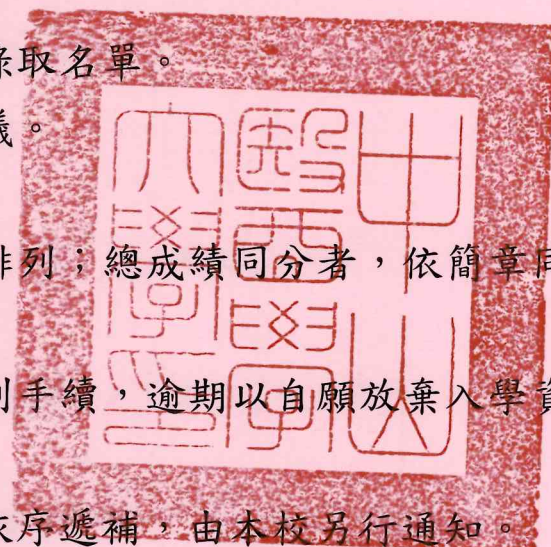 錄取名單。
議。
排列；總成績同分者，依簡章同
到手續，逾期以自願放棄入學資
依序遞補，由本校另行通知。
中山
醫學大學
大學印